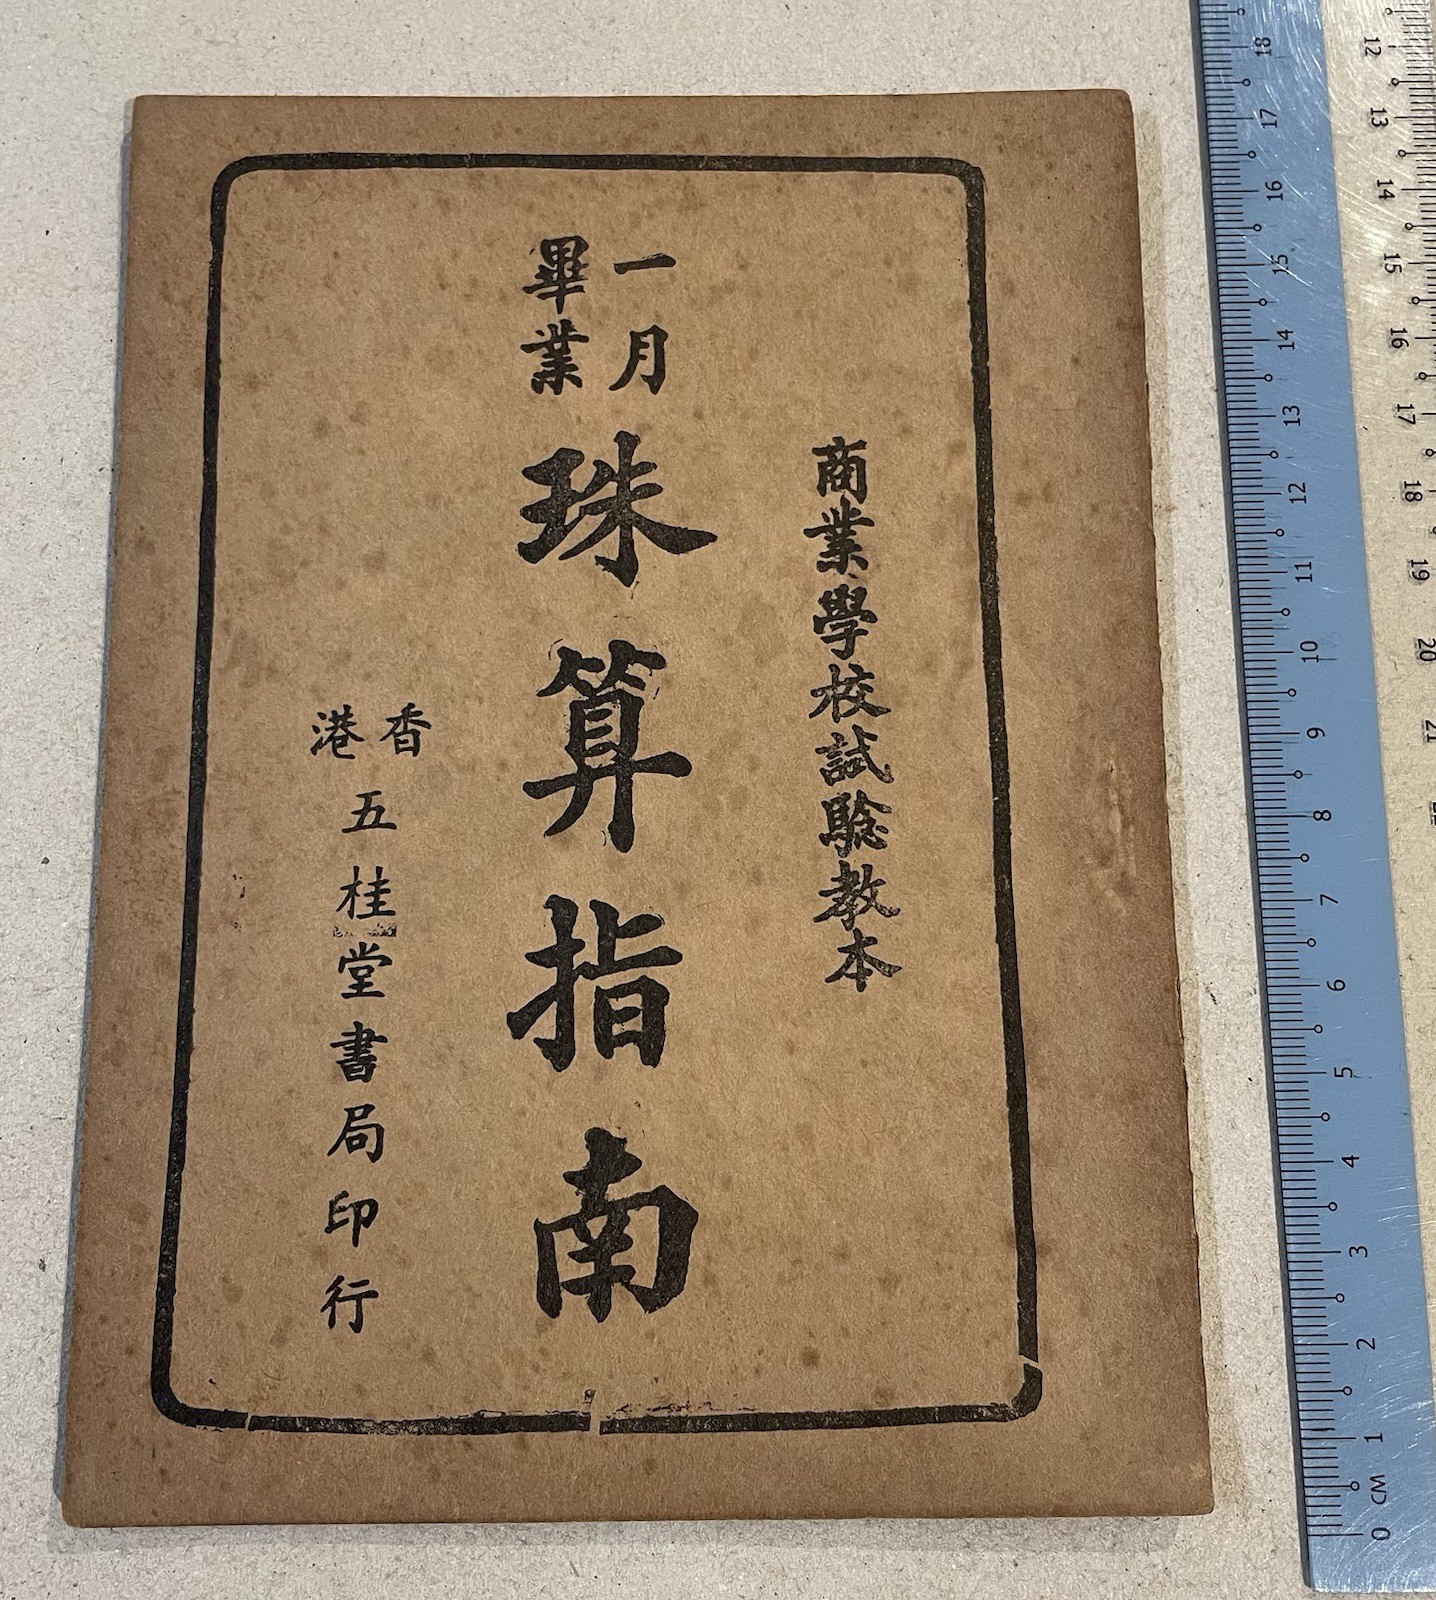 商業學校試驗教本
一月畢業
珠算指南
香港
五桂堂書局印行
18
17
16
15
14
13
12
11
10
9
8
7
6
5
4
3
2
1
CM
0
12
13
14
15
16
17
18
19
20
21